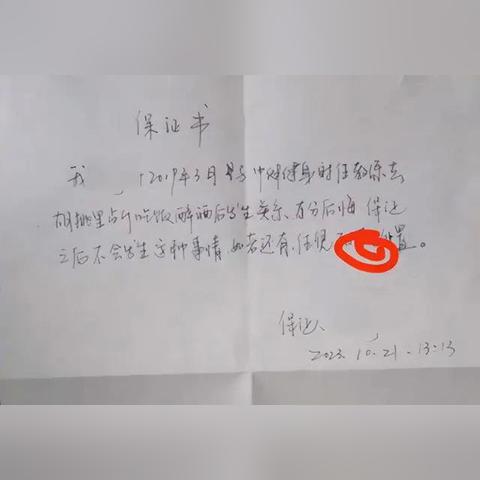 保证书
我 于2019年3月 中 健身时任教 去
胡桃里 吃饭醉酒后发生关系、万分后悔 保证
之后不会发生这种事情,如若还有,任凭 处置。
保证人
2023.10.21.13:13